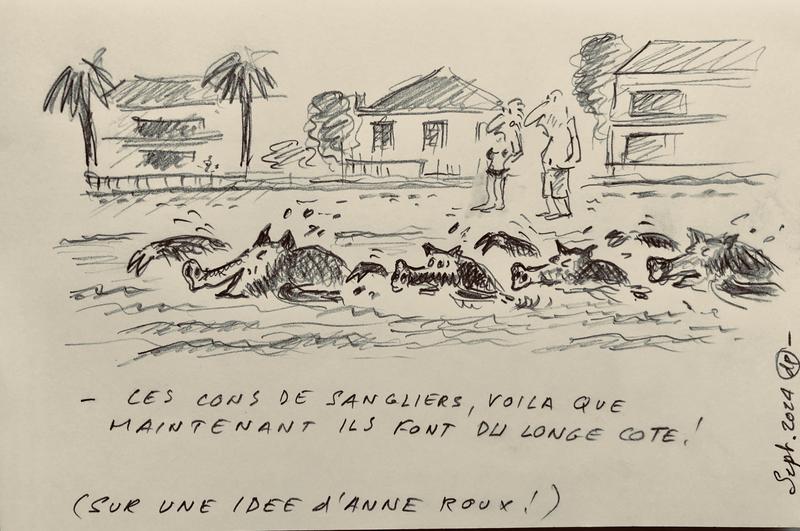 - CES CONS DE SANGLIERS, VOILA QUE
MAINTENANT ILS FONT DU LONGE COTE!
(SUR UNE IDEE d'ANNE ROUX!)
Sept. 2024 dp -